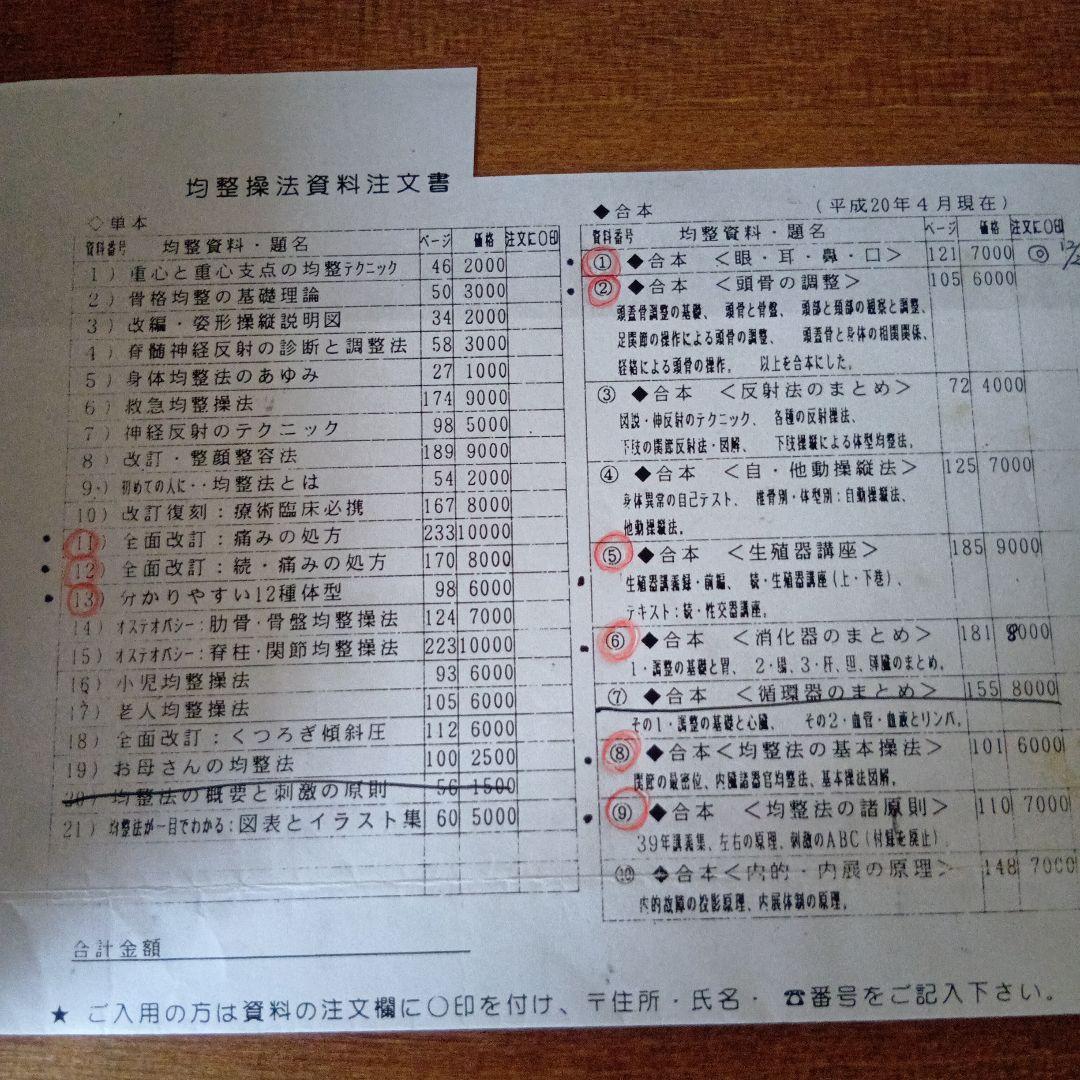 均整操法資料注文書
◇単本
資料番号 均整資料・題名 ページ 価格 注文に〇印
1) 重心と重心支点の均整テクニック 46 2000
2) 骨格均整の基礎理論 50 3000
3) 改編・姿形操縦説明図 34 2000
4) 脊髄神経反射の診断と調整法 58 3000
5) 身体均整法のあゆみ 27 1000
6) 救急均整操法 174 9000
7) 神経反射のテクニック 98 5000
8) 改訂・整顔整容法 189 9000
9) 初めての人に・・均整法とは 54 2000
10) 改訂復刻：療術臨床必携 167 8000
11) 全面改訂：痛みの処方 233 10000
12) 全面改訂：続・痛みの処方 170 8000
13) 分かりやすい12種体型 98 6000
14) オステオパシー：肋骨・骨盤均整操法 124 7000
15) オステオパシー：脊柱・関節均整操法 223 10000
16) 小児均整操法 93 6000
17) 老人均整操法 105 6000
18) 全面改訂：くつろぎ傾斜圧 112 6000
19) お母さんの均整法 100 2500
20) 均整法の概要と刺激の原則 56 1500
21) 均整法が一目でわかる：図表とイラスト集 60 5000
合計金額
◆合本 (平成20年4月現在)
資料番号 均整資料・題名 ページ 価格 注文に〇印
① ◆合本 <眼・耳・鼻・口> 121 7000 ◎
② ◆合本 <頭骨の調整> 105 6000
頭蓋骨調整の基礎、 頭骨と骨盤、 頭部と頚部の観察と調整、
足関節の操作による頭骨の調整、 頭蓋骨と身体の相関関係、
経絡による頭骨の操作。 以上を合本にした。
③ ◆合本 <反射法のまとめ> 72 4000
図説・伸反射のテクニック、 各種の反射操法、
下肢の関節反射法・図解、 下肢操縦による体型均整法。
④ ◆合本 <自・他動操縦法> 125 7000
身体異常の自己テスト、 椎骨別・体型別：自動操縦法、
他動操縦法。
⑤ ◆合本 <生殖器講座> 185 9000
生殖器講義録・前編、 続・生殖器講座（上・下巻）、
テキスト：続・性交器講座。
⑥ ◆合本 <消化器のまとめ> 181 8000
1・調整の基礎と胃、 2・腸、3・肝、胆、膵臓のまとめ。
⑦ ◆合本 <循環器のまとめ> 155 8000
その1・調整の基礎と心臓、 その2・血管・血液とリンパ。
⑧ ◆合本<均整法の基本操法> 101 6000
関節の最密位、内臓諸器官均整法、基本操法図解。
⑨ ◆合本 <均整法の諸原則> 110 7000
39年講義集、左右の原理、刺激のABC（付録を廃止）
⑩ ◆合本<内的・内展の原理> 148 7000
内的故障の投影原理、内展体制の原理。
★ ご入用の方は資料の注文欄に〇印を付け、〒住所・氏名・ ☎番号をご記入下さい。